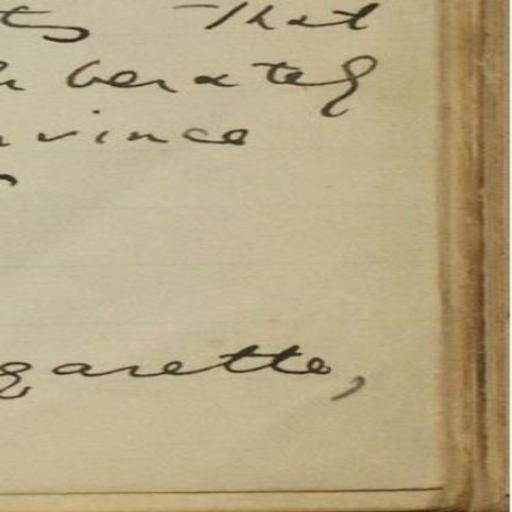 ts that
berately
vince
garette,